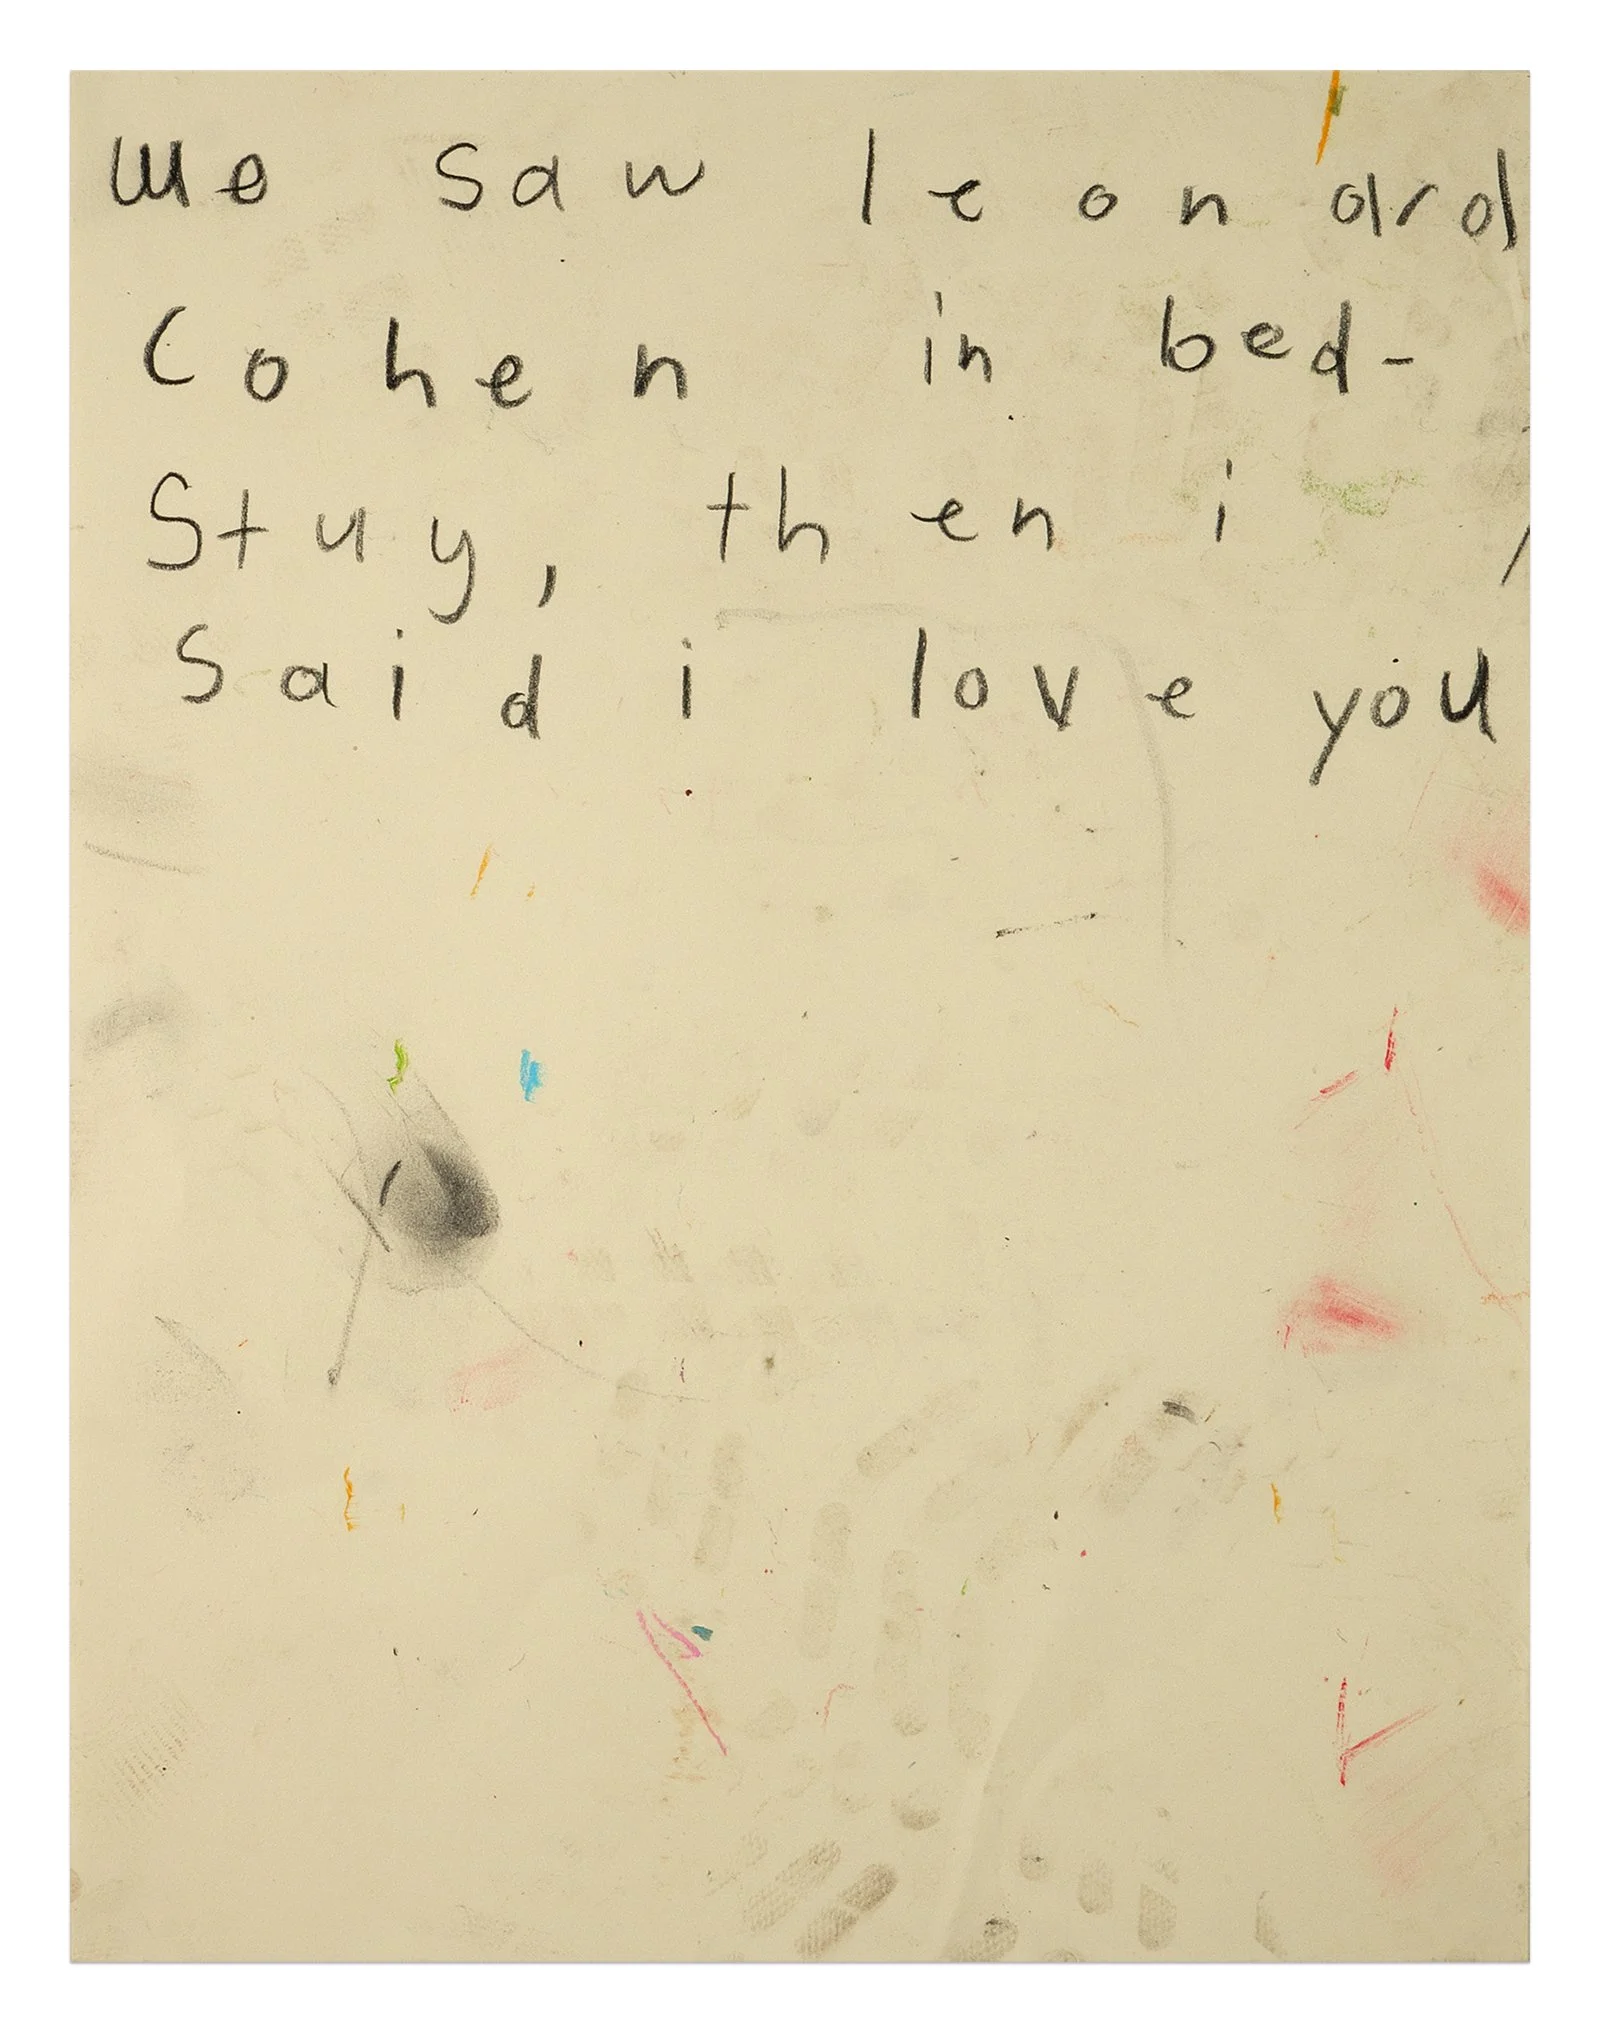 We saw leonard
Cohen in bed-
Stuy, then i
Said i love you